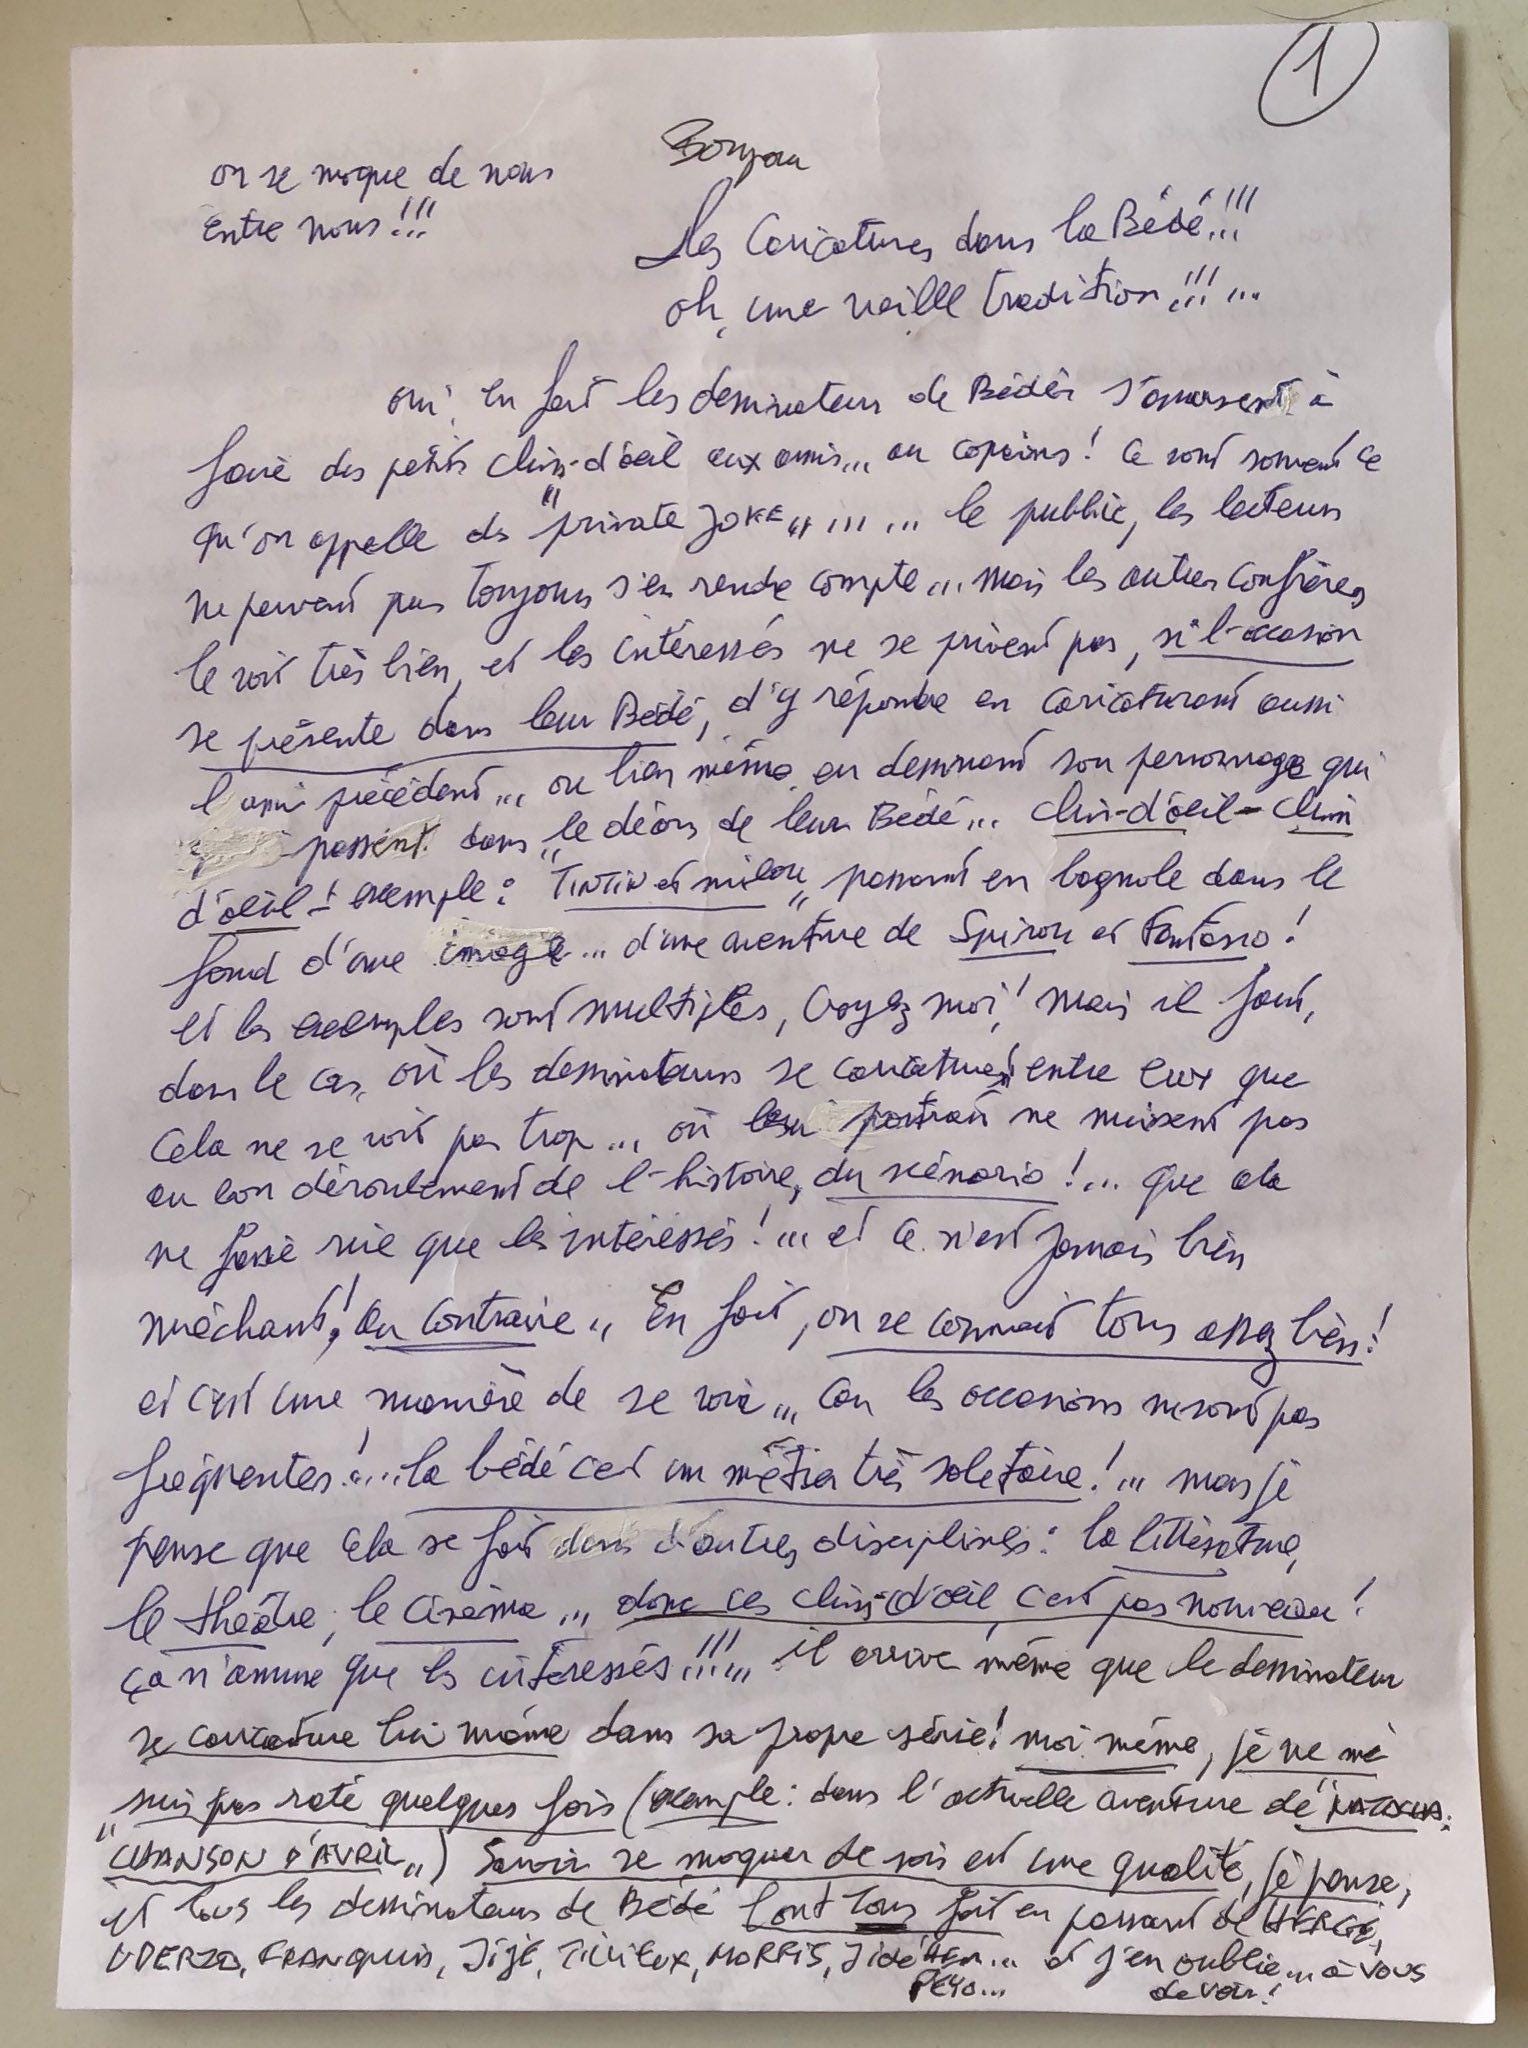 1
Bonjour
on se moque de nous
entre nous!!!
Les Caricatures dans la Bédé!!!
oh, une vieille tradition!!!...
oui, en fait les dessinateurs de Bédés s'amusent à
faire des petits clins-d'œil aux amis... ou copains! Ce sont souvent ce
qu'on appelle des "private JOKE"...... le public, les lecteurs
ne peuvent pas toujours s'en rendre compte... mais les autres confrères
le voit très bien, et les intéressés ne se privent pas, si l'occasion
se présente dans leur Bédé, d'y répondre en caricaturant aussi
l'ami précédent... ou bien même en dessinant son personnage qui
passent dans le décors de leur Bédé... Clin-d'œil-Clin
d'œil! exemple: "TINTIN et milou" passant en bagnole dans le
fond d'une image... d'une aventure de Spirou et Fantasio!
et les exemples sont multiples, croyez moi! mais il faut,
dans le cas, où les dessinateurs se caricaturent entre eux que
cela ne se voit pas trop... où leur portrait ne nuisent pas
au bon déroulement de l'histoire, du scénario!... que cela
ne fasse rire que les intéressés!... et ce n'est jamais bien
méchant! Au contraire.. En fait, on se connait tous assez bien!
et c'est une manière de se voir... car les occasions ne sont pas
fréquentes!... la bédé c'est un métier très soletaire!... mais je
pense que cela se fait dans d'autres disciplines: la littérature,
le théâtre, le cinéma... donc ces clins-d'œil, c'est pas nouveau!
ça n'amuse que les intéressés!!!... il arrive même que le dessinateur
se caricature lui même dans sa propre série! moi même, je ne me
suis pas raté quelques fois (exemple: dans l'actuelle aventure de NATACHA:
"CHANSON D'AVRIL") Savoir se moquer de sois est une qualité, je pense,
et tous les dessinateurs de Bédé l'ont tous fait en passant de HERGÉ,
UDERZO, FRANQUIN, JIJÉ, TILLIEUX, MORRIS, Jidéhem... et j'en oublie... à vous
PEYO... de voir!